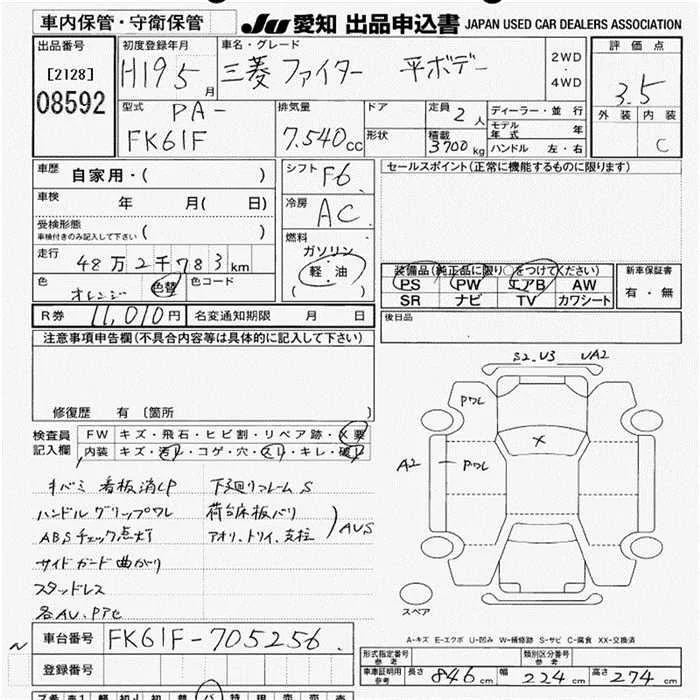 車内保管・守衛保管 JU 愛知 出品申込書 JAPAN USED CAR DEALERS ASSOCIATION
出品番号 初度登録年月 車名・グレード 評価点
[2128] H19 5月 三菱 ファイター 平ボデー 2WD・4WD
08592 3.5
型式 排気量 ドア 定員 2人 ディーラー・並行 外装 内装
PA- モデル年式 年
FK61F 7.540cc 形状 積載 3700kg ハンドル 左・右 C
車歴 自家用・( ) シフト F6 セールスポイント(正常に機能するものに限ります)
車検 年 月( 日) 冷房 AC
受検形態
車検付きのみ記入して下さい ( ) 燃料
走行 48万2千783km ガソリン
軽・油
( )
色 オレンジ 色替 色コード
装備品(純正品に限り○をつけてください) 新車保証書
PS PW エアB AW 有・無
SR ナビ TV カワシート
R券 11,010円 名変通知期限 月 日 後日品
注意事項申告欄(不具合内容等は具体的に記入して下さい)
修復歴 有 〔箇所 〕
S2.U3 UA2
検査員記入欄 FW キズ・飛石・ヒビ割・リペア跡・X要
内装 キズ・汚レ・コゲ・穴・スレ・キレ・破レ
Pワレ
X
A2 Pワレ
キバミ 看板消しP 下廻りフレームS
ハンドルグリップワレ 荷台床板バリ
ABSチェック点灯 アオリ、トリイ、支柱 AUS
サイドガード曲がり
スタッドレス
各AU、Pアセ
スペア
A-キズ E-エクボ U-凹み W-補修跡 S-サビ C-腐食 XX-交換済
車台番号 FK61F-705256
登録番号
形式指定番号 参考 類別区分番号 参考
車庫証明用 参考 長さ 846cm 幅 224cm 高さ 274cm